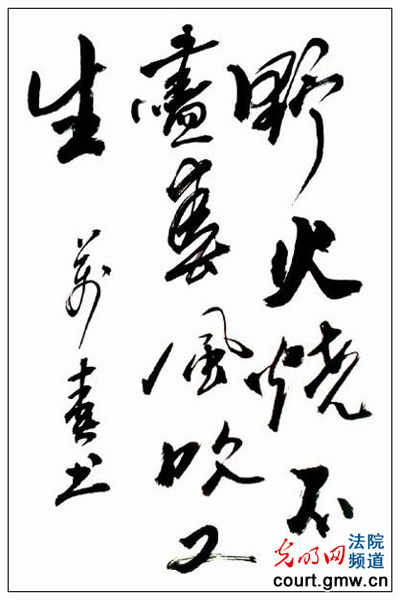 野火烧不
盡春風吹又
生
书
光明网
法院
频道
court.gmw.cn